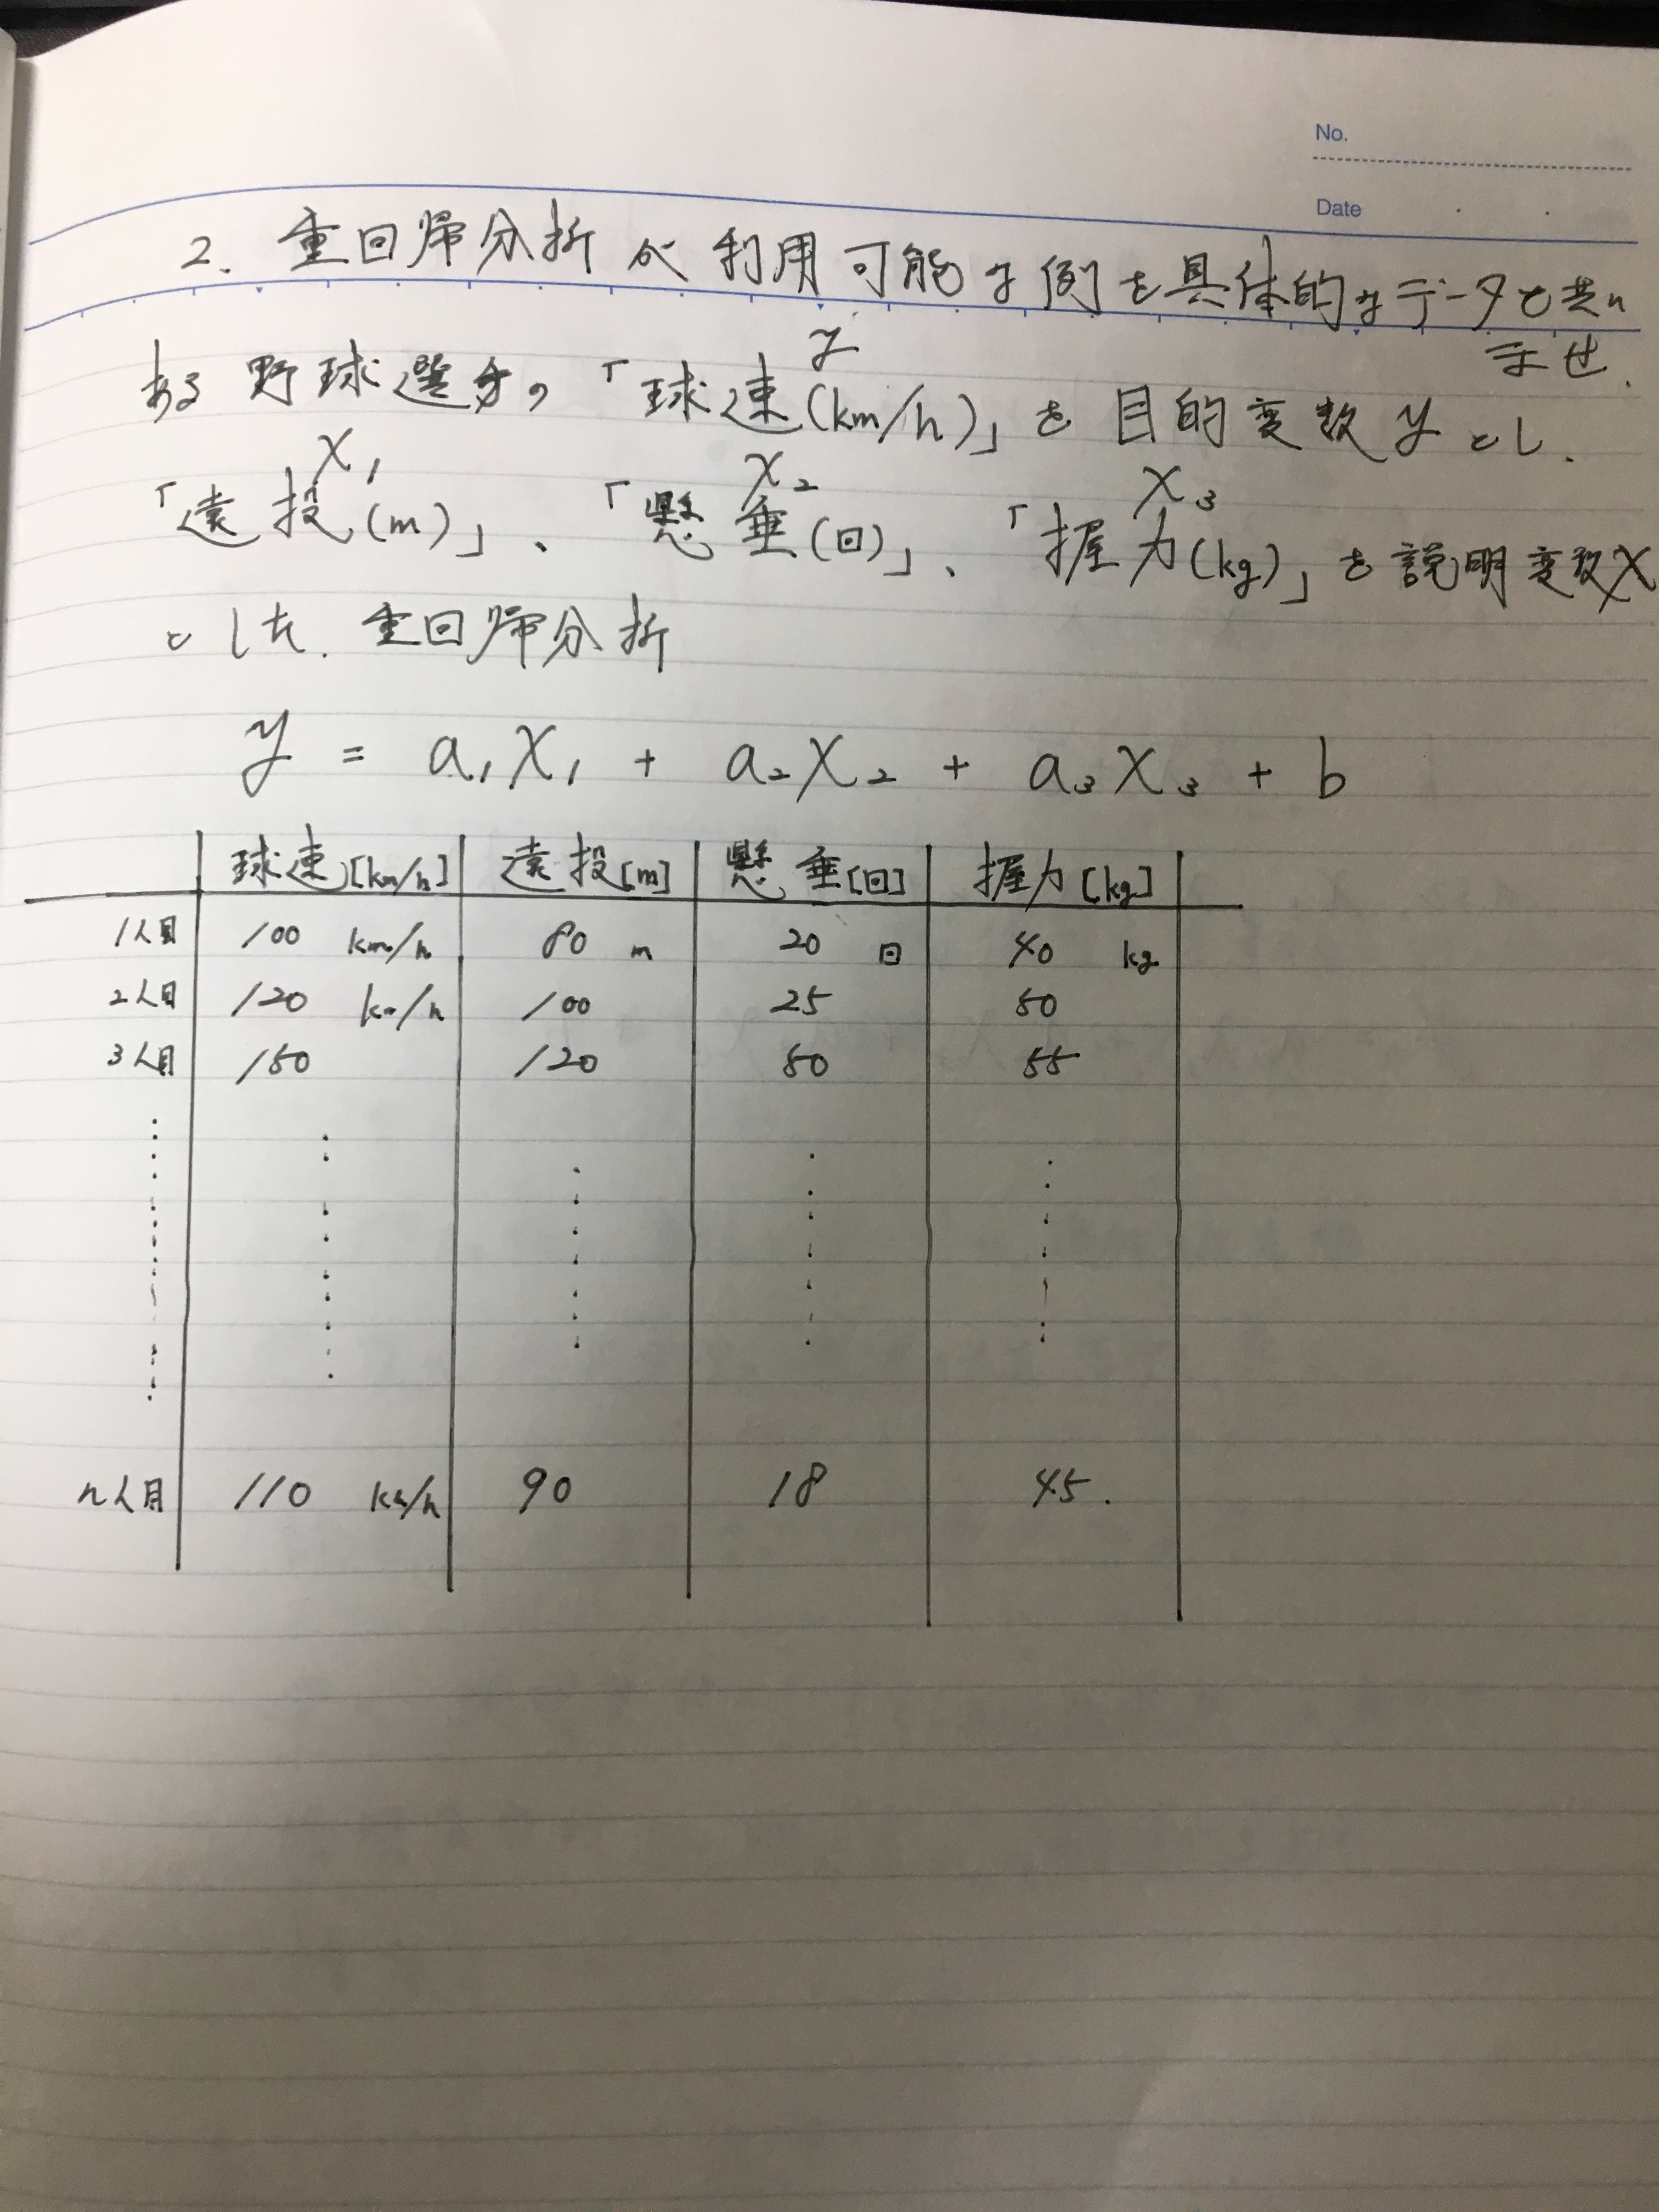 No.
Date
2. 重回帰分析が利用可能な例を具体的なデータと共に
示せ.
ある野球選手の「球速(km/h)」を目的変数yとし、
y
x₁ x₂ x₃
「遠投(m)」、「懸垂(回)」、「握力(kg)」を説明変数x
とした. 重回帰分析
y = a₁x₁ + a₂x₂ + a₃x₃ + b
球速[km/h] 遠投[m] 懸垂[回] 握力[kg]
1人目 100 km/h 80 m 20 回 40 kg
2人目 120 km/h 100 25 50
3人目 150 120 50 55
n人目 110 km/h 90 18 45.